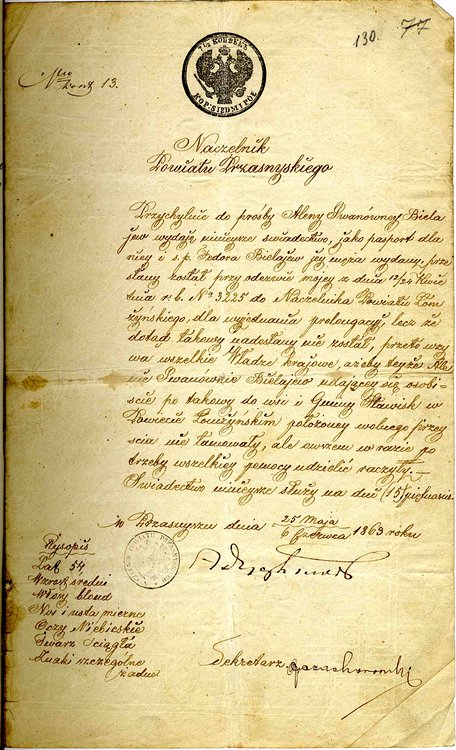 130. 77
7½ КОПѢЕКЪ
KOP. SIEDM I PÓŁ
Nro
Kont 13.
Naczelnik
Powiatu Przasnyskiego
Przychylnie do prośby Aleny Iwanówney Biela
jew wydaję ninieysze świadectwo, jako pasport dla
niey i ś.p. Fedora Bielajew jey męża wydany, prze
słany został przy odezwie mojey z dnia 12/24 Kwie
tnia r. b. No 3225 do Naczelnika Powiatu Łom
żyńskiego, dla wyjednania prolongacyi, lecz że
dotąd takowy nadesłany nie został, przeto wzy
wa wszelkie Władze krajowe, ażeby teyże Ale
nie Iwanównie Bielajew udającey się osobi=
ście po takowy do wsi i Gminy Stawisk w
Powiecie Łomżyńskim położoney wolnego przey
ścia nie tamowały, ale owszem w razie po
trzeby wszelkiey pomocy udzielić raczyły.
Świadectwo ninieysze służy na dni (15) piętnaście.
w Przasnyszu dnia 25 Maja / 6 Czerwca 1863 roku
Rysopis
Lat 54
Wzrost średni
Włosy blond
Nos i usta mierne
Oczy Niebieskie
Twarz Ściągła
Znaki szczególne
żadne
Sekretarz